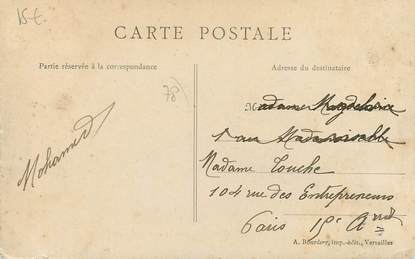 15€
CARTE POSTALE
Partie réservée à la correspondance
Adresse du destinataire
78
Mohamed
Madame
Madame Touche
104 rue des Entrepreneurs
Paris 15e Arrdt
A. Bourdery, imp.-édit., Versailles